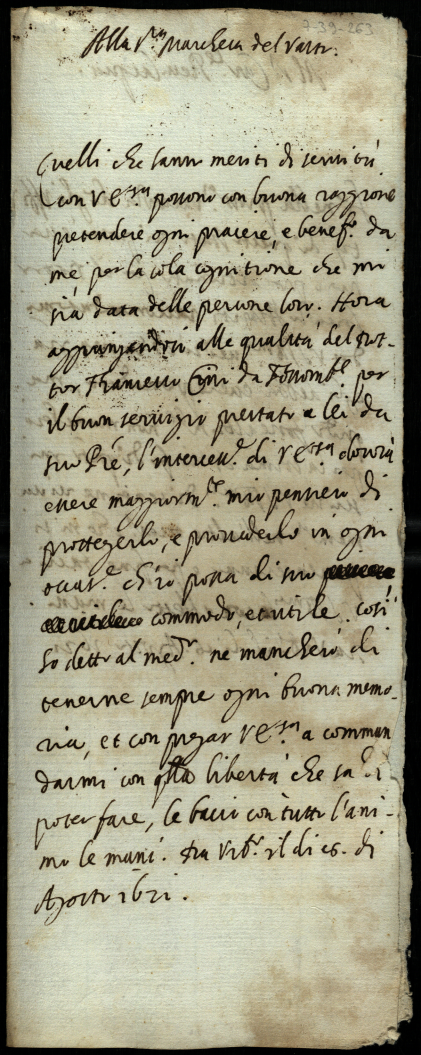 7-39-263
Alla S.ra Marchesa del Vasto.
Quelli che hanno meriti di servitù
con V E.za possono con buona raggione
pretendere ogni piacere, e benef.o da
me, per la sola cognitione che mi
sia data delle persone loro. Hora
aggiungendosi alle qualità del Dot-
tor Francesco Cini da Fossomb.e per
il buon servizio prestato a lei da
suo P̃re, l'intercess.e di V E.za dovrà
essere maggiorm.te mio pensiero di
proteggerlo, e provederlo in ogni
occas.ne ch'io possa di suo
commodo, et utile. così
ho detto al med.o ne mancherò di
tenerne sempre ogni buona memo-
ria, et con pregar V E.za a comman
darmi con q̃lla libertà che sa di
poter fare, le bacio con tutto l'ani-
mo le mani. Da Urb.o il di di
Agosto 1621.